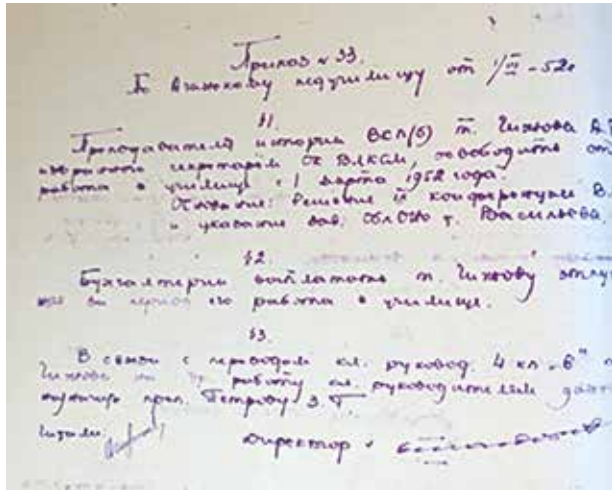 Приказ № 33.
По Агинскому педучилищу от 1/VI-52г
§1
Преподавателя истории ВКП(б) т. Чижова А.
избранного секретарем ОК ВЛКСМ, освободить от
работы в училище с 1 марта 1952 года.
Основание: Решение IX конференции В
и указание зав. ОблОНО т. Васильева.
§2.
Бухгалтерии выплатить т. Чижову отпу
за период его работы в училище.
§3
В связи с переводом кл. руковод. 4 кл. "б" т
Чижова на др. работу кл. руководителем
преп. Петрову З. Т.
Читали:
Директор